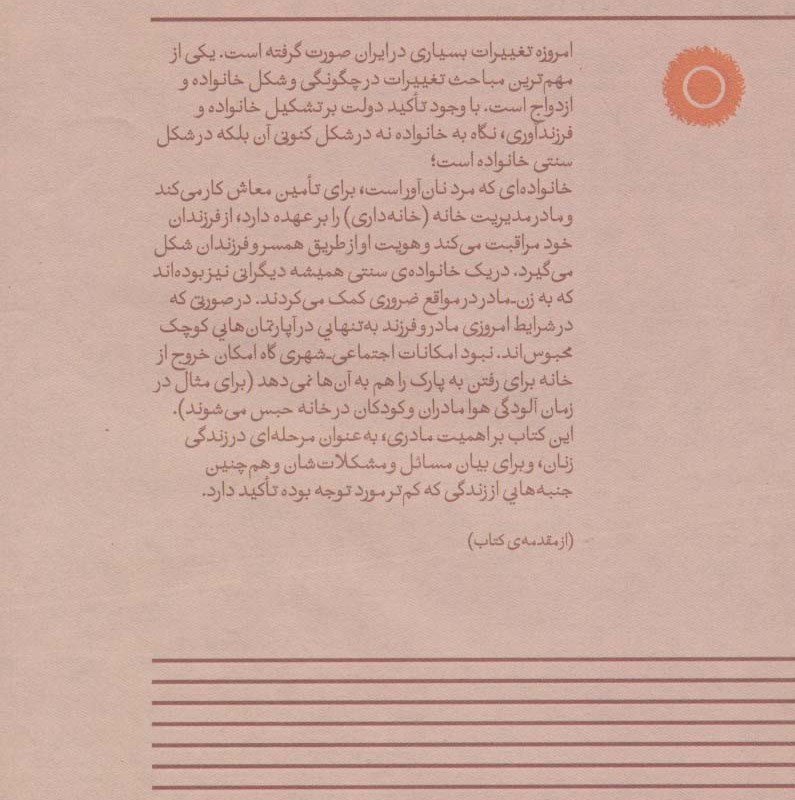 امروزه تغییرات بسیاری در ایران صورت گرفته است. یکی از
مهم‌ترین مباحث تغییرات در چگونگی و شکل خانواده و
ازدواج است. با وجود تأکید دولت بر تشکیل خانواده و
فرزندآوری، نگاه به خانواده نه در شکل کنونی آن بلکه در شکل
سنتی خانواده است؛
خانواده‌ای که مرد نان‌آور است، برای تأمین معاش کار می‌کند
و مادر مدیریت خانه (خانه‌داری) را بر عهده دارد، از فرزندان
خود مراقبت می‌کند و هویت او از طریق همسر و فرزندان شکل
می‌گیرد. در یک خانواده‌ی سنتی همیشه دیگرانی نیز بوده‌اند
که به زن-مادر در مواقع ضروری کمک می‌کردند. در صورتی که
در شرایط امروزی مادر و فرزند به‌تنهایی در آپارتمان‌هایی کوچک
محبوس‌اند. نبود امکانات اجتماعی-شهری گاه امکان خروج از
خانه برای رفتن به پارک را هم به آن‌ها نمی‌دهد (برای مثال در
زمان آلودگی هوا مادران و کودکان در خانه حبس می‌شوند).
این کتاب بر اهمیت مادری، به‌عنوان مرحله‌ای در زندگی
زنان، و برای بیان مسائل و مشکلات‌شان و هم‌چنین
جنبه‌هایی از زندگی که کم‌تر مورد توجه بوده تأکید دارد.
(از مقدمه‌ی کتاب)